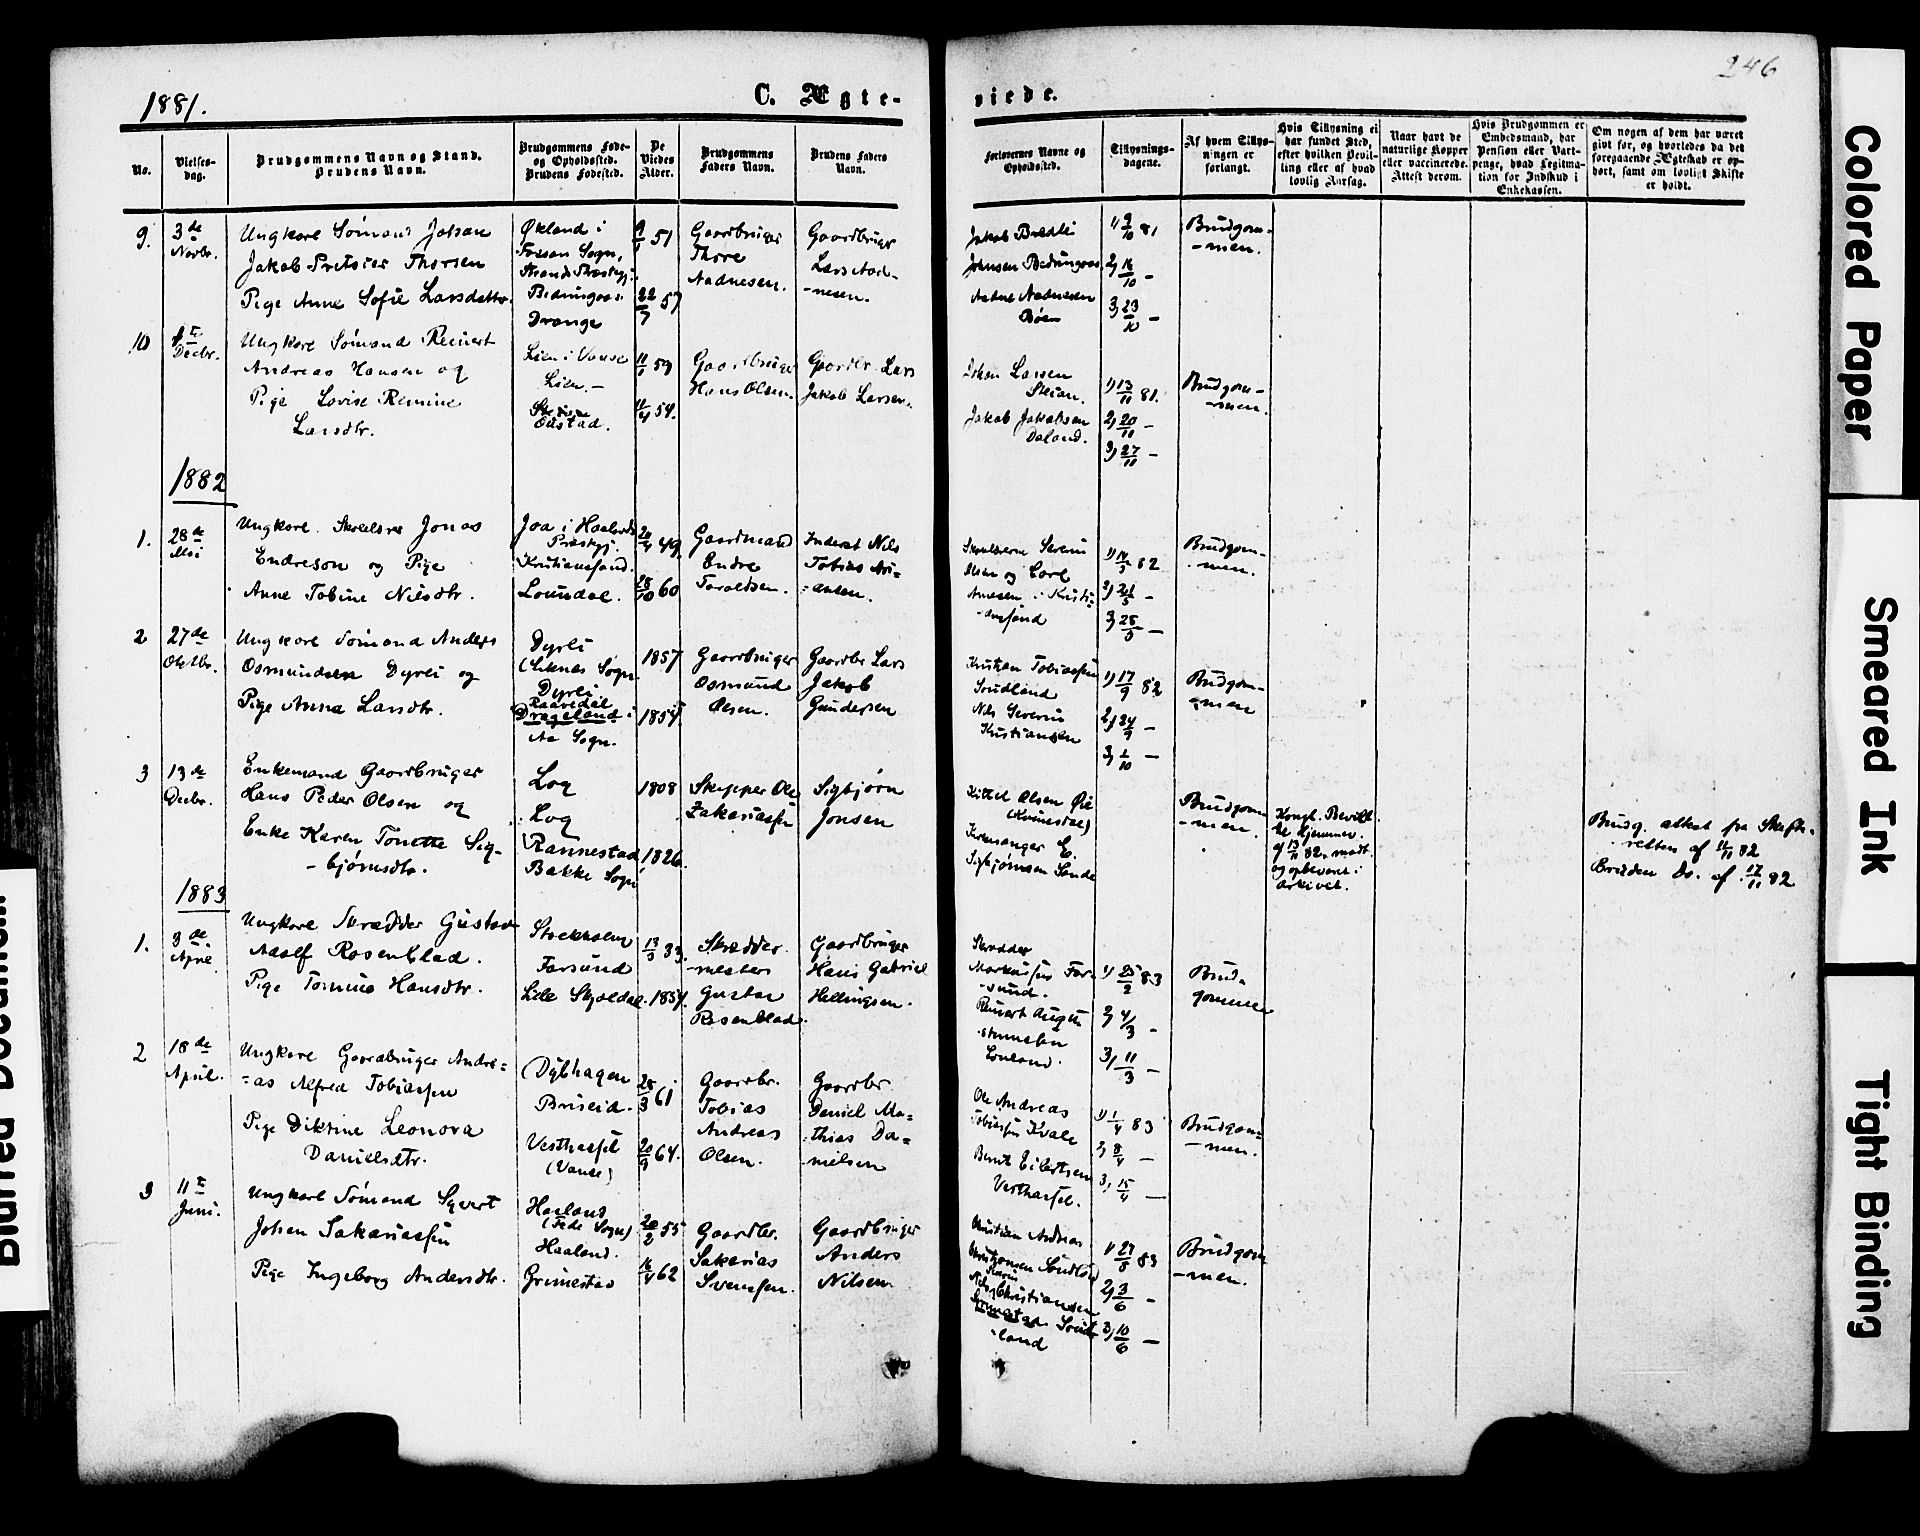 246
1881.
C. Ægte-
viede.
No.
Vielses-
dag.
Brudgommens Navn og Stand.
Brudens Navn.
Brudgommens Føde-
og Opholdssted.
Brudens Fødested.
De
Viedes
Alder.
Brudgommens
Faders Navn.
Brudens Faders
Navn.
Forlovernes Navne og
Opholdssted.
Tillysnings-
dagene.
Af hvem Tillys-
ningen er
forlangt.
Hvis Tillysning ei
har fundet Sted,
efter hvilken Bevil-
ling eller af hvad
lovlig Aarsag.
Naar havt de
naturlige Kopper
eller vaccinerede.
Attest derom.
Hvis Brudgommen er
Embedsmand, har
Pension eller Vart-
penge, hvad Legitima-
tion for Indskud i
Enkekassen.
Om nogen af dem har været
gift før, og hvorledes da det
foregaaende Ægteskab er op-
hørt, samt om lovligt Skifte
er holdt.
9.
3de
Novbr.
Ungkarl Sømand Johan
Jakob Thorsen
Pige Anne Sofie Larsdattr.
Økland i
Fossan Sogn,
Strands Præstegj.
Drange
9/1 51
22/7 57
Gaardbruger
Thore
Aadnesen.
Gaardbruger
Lars Aad-
-nesen.
Jakob
Johnsen
Aadne Aadnesen
Bøen
1) 9/10 81
2) 16/10 -
3) 23/10 -
Brudgom-
-men.
10
Decbr.
Ungkarl Sømand Reinert
Andreas Hansen og
Pige Lovise Remine
Larsdtr.
Lien i Vanse
Lien. -
Østad.
11/1 59
11/4 54.
Gaardbruger
Hans Olsen.
Gaardbr. Lars
Jakob Larsen.
Johan Larsen
Jakob Jakobsen
Daland.
1) 13/11 81.
2) 20/11 -
3) 27/11 -
Brudgom-
-men.
1882
1.
28de
Mai
Ungkarl Jonas
Endreson og Pige
Anne Tobine Nilsdtr.
Joa i Haalands
Præstgj.
Kristiansand.
Loundal.
20/4 49.
28/10 60
Gaardmand
Endre
Taraldsen.
Inderst Nils
Tobias Ari-
-ansen.
Skrædderne Severin
Olsen og Carl
Arnesen i Kristi-
-ansand
1) 14/5 82
2) 21/5 -
3) 28/5 -
Brudgom-
-men.
2
27de
Oktbr.
Ungkarl Sømand Anders
Osmundsen Dyrli og
Pige Anna Larsdtr.
Dyrli
(Liknes Sogn
Dyrli
Raavedal
Drageland i
Aa Sogn.
1857
1854
Gaardbruger
Osmund
Olsen.
Gaardbr Lars
Jakob
Gundersen
Kristian Tobiassen
Sindland
Nils Severin
Kristiansen
1) 17/9 82
2) 24/9 -
3) 1/10 -
Brudgom-
-men
3
13de
Decbr.
Enkemand Gaardbruger
Hans Peder Olsen og
Enke Karen Tonette Sig-
-bjørnsdtr.
Log
Log
Rannestad
Bakke Sogn
1808
1826.
Skipper Ole
Zakariassen
Sigbjørn
Jonsen
Kittel Olsen Øie
(Kvinesdal)
Kirkesanger E.
Sigbjørnsen Sande
Brudgom
-men.
Kongl. Bevill.
til Hjemmev.
af 13/11 82 modt.
og opbevaret i
arkivet.
Brudg. attest fra Skifte-
retten af 11/11 82
Bruden Do. af 17/11 82
1883
1.
3de
April
Ungkarl Skrædder Gustav
Adolf Rosenblad.
Pige Tomine Hansdtr.
Stockholm
Farsund
Lille Skjoldal.
13/3 33.
1857.
Skrædder
-mester
Gustav
Rosenblad.
Gaardbruger
Hans Gabriel
Hellingsen.
Skrædder
Markussen Far-
-sund.
Reinert Augu
Lonland.
1) 25/2 83
2) 4/3 -
3) 11/3 -
Brud-
gommen
2
18de
April.
Ungkarl Gaardbruger Andre-
-as Alfred Tobiassen
Pige Diktine Leonora
Danielsdtr.
Dybhagen
Briseid.
Vesthassel
(Vanse)
28/3 61
20/9 64.
Gaardbr.
Tobias
Andreas
Olsen.
Gaardbr
Daniel Ma-
-thias Da-
-nielsen
Ole Andreas
Tobiassen Kvale
Bernt Eilertsen
Vesthassel.
1) 1/4 83
2) 8/4 -
3) 15/4 -
Brudgom-
-men.
3
11te
Juni.
Ungkarl Sømand Syvert
Johan Sakariassen
Pige Ingeborg Andersdtr.
Haaland
(Fede Sogn)
Haaland.
Grimestad
20/2 55
16/4 62
Gaardbr.
Sakarias
Svensen.
Gaardbruger
Anders
Nilsen
Christian Andreas
Christiansen Sindland
Nils Christiansen
-land
1) 27/5 83
2) 3/6 -
3) 10/6 -
Brudgom
-men.
Colored Paper
Smeared Ink
Tight Binding
Blurred Document